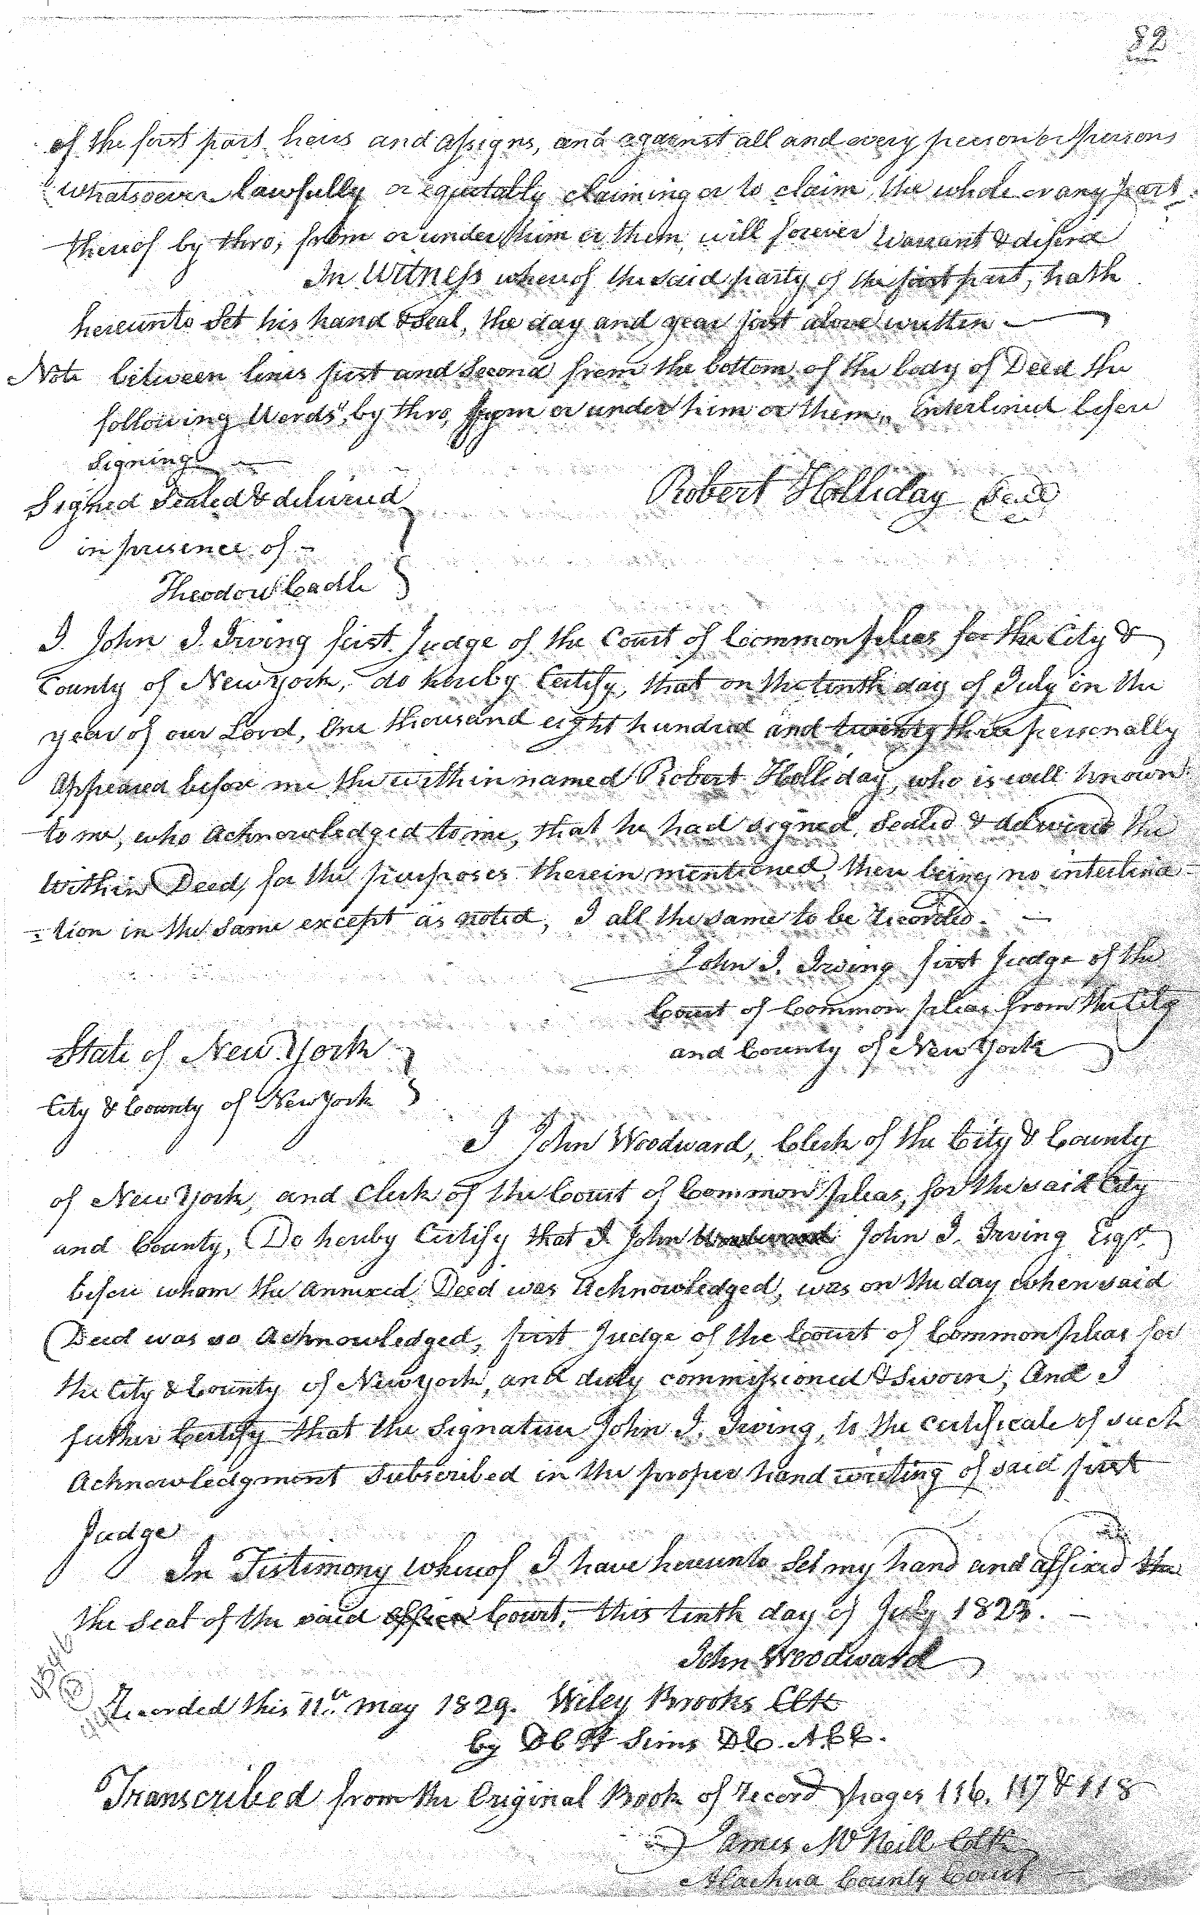 82
of the first part heirs and assigns, and against all and every person or persons
whatsoever lawfully or equitably claiming or to claim the whole or any part
thereof by thro, from or under him or them, will forever Warrant & defend
In Witness whereof the said party of the first part, hath
hereunto Set his hand & Seal, the day and year first above written
Note between lines first and Second from the bottom of the body of Deed the
following Words "by thro, from or under him or them," interlined before
signing
Signed Sealed & delivered
Robert Holliday Seal
in presence of
Theodore Cadle
I. John I. Irving first Judge of the Court of Common pleas for the City &
County of New York, do hereby Certify, that on the tenth day of July in the
year of our Lord, One thousand eight hundred and twenty three personally
Appeared before me the within named Robert Holliday, who is well known
to me, who acknowledged to me, that he had signed, Sealed & delivered the
Within Deed, for the purposes therein mentioned, there being no interlinea
=tion in the same except as noted, I all the same to be recorded.
John I. Irving first Judge of the
Court of Common pleas from the City
and County of New York
State of New York
City & County of New York
I John Woodward, Clerk of the City & County
of New York, and Clerk of the Court of Common pleas, for the said City
and County, Do hereby Certify that I John Woodward John I. Irving Esqr.
before whom the annexed Deed was Acknowledged, was on the day when said
Deed was so Acknowledged, first Judge of the Court of Common pleas for
the City & County of New York, and duly commissioned & Sworn, And I
futher Certify that the Signature John I. Irving, to the certificate of such
Acknowledgment Subscribed in the proper hand writing of said first
Judge
In Testimony whereof I have hereunto Set my hand and affixed the
the seal of the said office Court, this tenth day of July 1823.
John Woodward
4546
Recorded this 11th May 1829. Wiley Brooks Clk
by D C H Sims D.C. A.C.C.
Transcribed from the Original Book of record pages 116, 117 & 118
James McNeill Clk
Alachua County Court